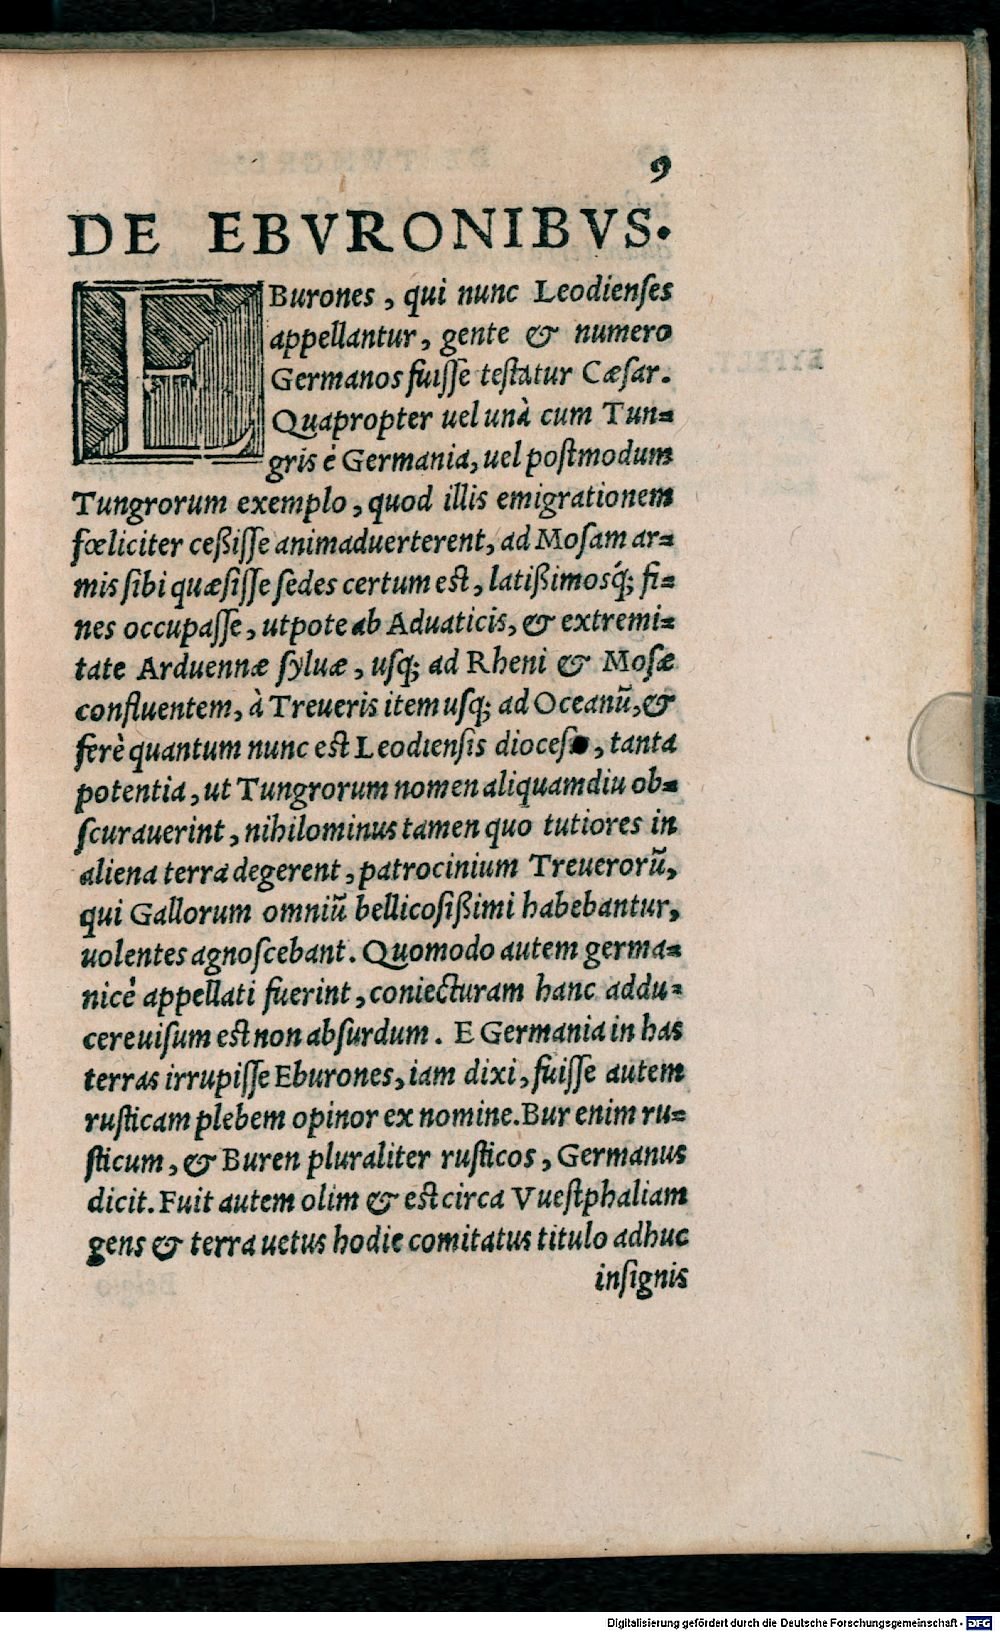 9
DE EBVRONIBVS.
EBurones, qui nunc Leodienses
appellantur, gente & numero
Germanos fuiſſe teſtatur Cæſar.
Quapropter uel unà cum Tun=
gris è Germania, uel poſtmodum
Tungrorum exemplo, quod illis emigrationem
fœliciter ceßiſſe animaduerterent, ad Moſam ar=
mis ſibi quæſiſſe ſedes certum eſt, latißimosq́; fi=
nes occupaſſe, utpote ab Aduaticis, & extremi=
tate Arduennæ ſyluæ, uſq; ad Rheni & Moſæ
confluentem, à Treueris item uſq; ad Oceanũ, &
ferè quantum nunc eſt Leodienſis dioceſ, tanta
potentia, ut Tungrorum nomen aliquamdiu ob=
ſcurauerint, nihilominus tamen quo tutiores in
aliena terra degerent, patrocinium Treuerorũ,
qui Gallorum omniũ bellicoſißimi habebantur,
uolentes agnoſcebant. Quomodo autem germa=
nicè appellati fuerint, coniecturam hanc addu=
cere uiſum eſt non abſurdum. E Germania in has
terras irrupiſſe Eburones, iam dixi, fuiſſe autem
ruſticam plebem opinor ex nomine. Bur enim ru=
ſticum, & Buren pluraliter ruſticos, Germanus
dicit. Fuit autem olim & eſt circa Vueſtphaliam
gens & terra uetus hodie comitatus titulo adhuc
inſignis
Digitalisierung gefördert durch die Deutsche Forschungsgemeinschaft - DFG